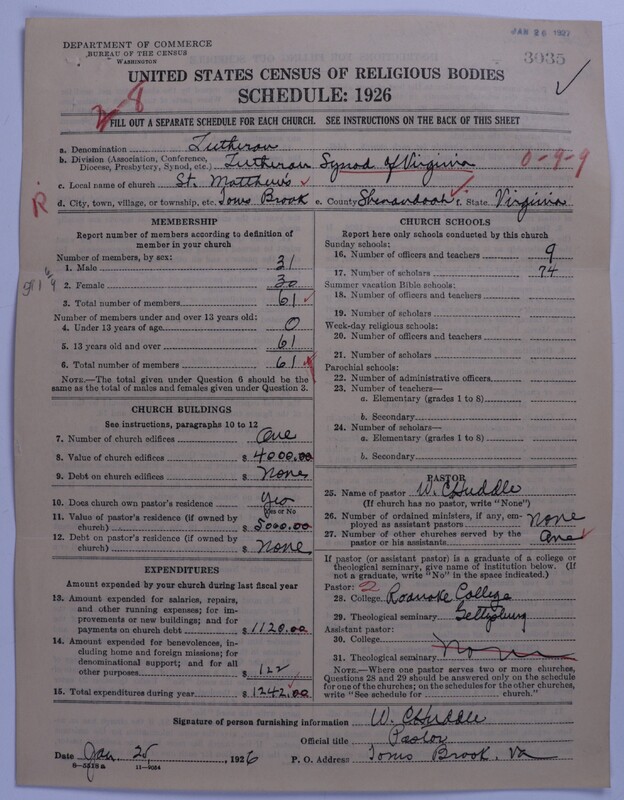 JAN 26 1927
DEPARTMENT OF COMMERCE
BUREAU OF THE CENSUS
WASHINGTON
3035
UNITED STATES CENSUS OF RELIGIOUS BODIES
SCHEDULE: 1926
2-8
FILL OUT A SEPARATE SCHEDULE FOR EACH CHURCH. SEE INSTRUCTIONS ON THE BACK OF THIS SHEET
a. Denomination Lutheran
b. Division (Association, Conference, Diocese, Presbytery, Synod, etc.) Lutheran Synod of Virginia 0-9-9
c. Local name of church St. Matthew's
R
d. City, town, village, or township, etc. Toms Brook e. County Shenandoah f. State Virginia
MEMBERSHIP
Report number of members according to definition of
member in your church
Number of members, by sex:
1. Male 31
2. Female 30
3. Total number of members 61
Number of members under and over 13 years old:
4. Under 13 years of age 0
5. 13 years old and over 61
6. Total number of members 61
NOTE.—The total given under Question 6 should be the
same as the total of males and females given under Question 3.
CHURCH BUILDINGS
See instructions, paragraphs 10 to 12
7. Number of church edifices One
8. Value of church edifices $ 4000.00
9. Debt on church edifices $ None
10. Does church own pastor's residence Yes
Yes or No
11. Value of pastor's residence (if owned by
church) $ 5000.00
12. Debt on pastor's residence (if owned by
church) $ None
EXPENDITURES
Amount expended by your church during last fiscal year
13. Amount expended for salaries, repairs,
and other running expenses; for im-
provements or new buildings; and for
payments on church debt $ 1120.00
14. Amount expended for benevolences, in-
cluding home and foreign missions; for
denominational support; and for all
other purposes $ 122
15. Total expenditures during year $ 1242.00
CHURCH SCHOOLS
Report here only schools conducted by this church
Sunday schools:
16. Number of officers and teachers 9
17. Number of scholars 74
Summer vacation Bible schools:
18. Number of officers and teachers
19. Number of scholars
Week-day religious schools:
20. Number of officers and teachers
21. Number of scholars
Parochial schools:
22. Number of administrative officers
23. Number of teachers—
a. Elementary (grades 1 to 8)
b. Secondary
24. Number of scholars—
a. Elementary (grades 1 to 8)
b. Secondary
PASTOR
25. Name of pastor W. C Huddle
(If church has no pastor, write "None")
26. Number of ordained ministers, if any, em-
ployed as assistant pastors None
27. Number of other churches served by the
pastor or his assistants One
If pastor (or assistant pastor) is a graduate of a college or
theological seminary, give name of institution below. (If
not a graduate, write "No" in the space indicated.)
Pastor: 2
28. College Roanoke College
29. Theological seminary Gettysburg
Assistant pastor:
30. College
None
31. Theological seminary
NOTE.—Where one pastor serves two or more churches,
Questions 28 and 29 should be answered only on the schedule
for one of the churches; on the schedules for the other churches,
write "See schedule for church."
Signature of person furnishing information W. C Huddle
Official title Pastor
Date Jan 25, 1926 P. O. Address Toms Brook, Va
8-5518a 11-9054